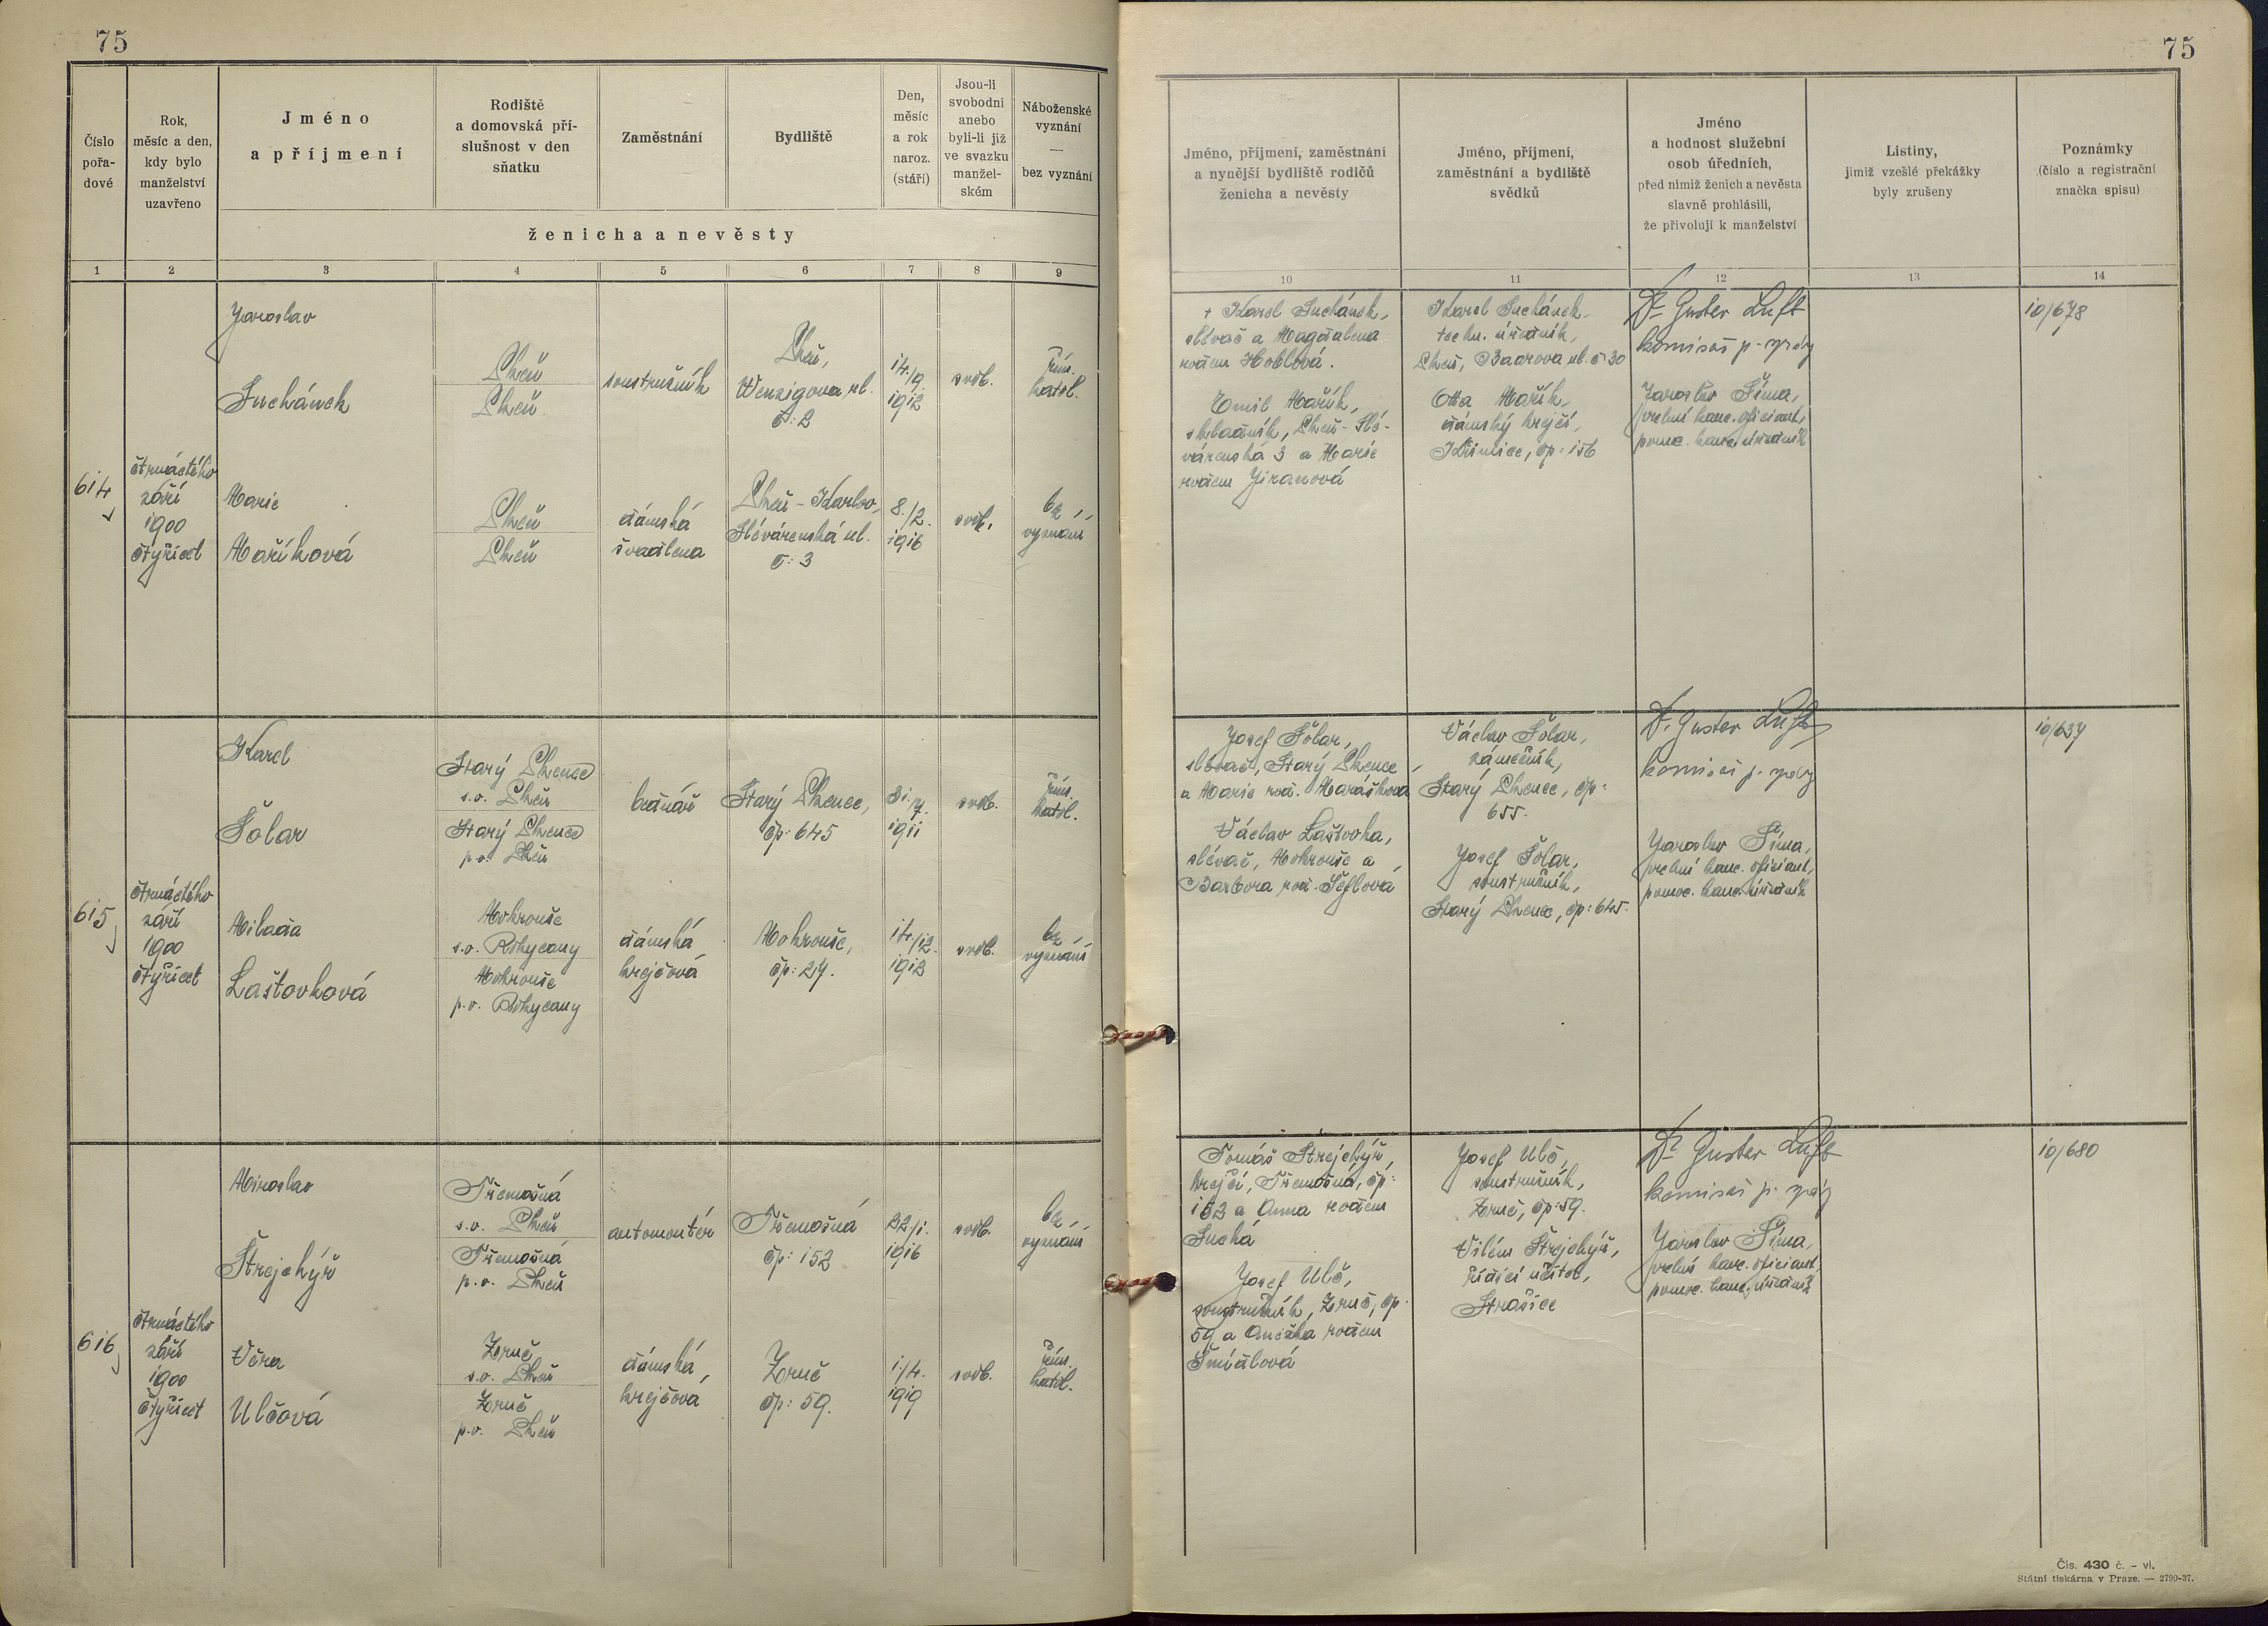 75
75
Číslo
pořa-
dové
Rok,
měsíc a den,
kdy bylo
manželství
uzavřeno
Jméno
a příjmení
Rodiště
a domovská pří-
slušnost v den
sňatku
Zaměstnání
Bydliště
Den,
měsíc
a rok
naroz.
(stáří)
Jsou-li
svobodni
anebo
byli-li již
ve svazku
manžel-
ském
Náboženské
vyznání
—
bez vyznání
ženicha a nevěsty
Jméno, příjmení, zaměstnání
a nynější bydliště rodičů
ženicha a nevěsty
Jméno, příjmení,
zaměstnání a bydliště
svědků
Jméno
a hodnost služební
osob úředních,
před nimiž ženich a nevěsta
slavně prohlásili,
že přivolují k manželství
Listiny,
jimiž vzešlé překážky
byly zrušeny
Poznámky
(číslo a registrační
značka spisu)
1 2 3 4 5 6 7 8 9
10 11 12 13 14
614
čtrnáctého
září
1900
čtyřicet
Jaroslav
Suchánek
Plzeň
Plzeň
soustružník
Plzeň,
Wenzigova ul.
č: 2
14./9.
1912
svob.
řím.
katol.
Marie
Maříková
Plzeň
Plzeň
dámská
švadlena
Plzeň - Karlov,
Slévárenská ul.
č: 3
8./2.
1916
svob.
bez
vyznání
+ Karel Suchánek,
slévač a Magdalena
rodem Hoblová.
Emil Mařík,
skladník, Plzeň - Slé-
várenská 3 a Marie
rodem Jiranová
Karel Suchánek,
techn. úředník,
Plzeň, Baarova ul. č: 30
Otta Mařík,
dámský krejčí,
Křimice, čp: 156
Dr Gustav Luft
komisař p. správy
Jaroslav Šíma,
vrchní kanc. oficiant,
pomoc. kanc. úředník
10/678
615
čtrnáctého
září
1900
čtyřicet
Karel
Šolar
Starý Plzenec
s.o. Plzeň
Starý Plzenec
p.o. Plzeň
bednář
Starý Plzenec,
čp: 645
31./7.
1911
svob.
řím.
katol.
Milada
Laštovková
Mokrouše
s.o. Rokycany
Mokrouše
p.o. Rokycany
dámská
krejčová
Mokrouše,
čp: 27.
14./12.
1912
svob.
bez
vyznání
Josef Šolar,
slévač, Starý Plzenec
a Marie roz. Marášková
Václav Laštovka,
slévač, Mokrouše a
Barbora roz. Šeflová
Václav Šolar,
zámečník,
Starý Plzenec, čp:
655.
Josef Šolar,
soustružník,
Starý Plzenec, čp: 645.
Dr Gustav Luft
komisař p. správy
Jaroslav Šíma,
vrchní kanc. oficiant,
pomoc. kanc. úředník
10/637
616
čtrnáctého
září
1900
čtyřicet
Miroslav
Štrejchýř
Třemošná
s.o. Plzeň
Třemošná
p.o. Plzeň
automontér
Třemošná
čp: 152
22/1.
1916
svob.
bez
vyznání
Věra
Ulčová
Zruč
s.o. Plzeň
Zruč
p.o. Plzeň
dámská
krejčová
Zruč
čp: 59.
1./4.
1919
svob.
řím.
katol.
Tomáš Štrejchýř,
krejčí, Třemošná, čp:
152 a Anna rodem
Suchá
Josef Ulč,
soustružník, Zruč, čp.
59 a Anežka rodem
Šmídlová
Josef Ulč,
soustružník,
Zruč, čp: 59.
Vilém Štrejchýř,
řídící učitel,
Strašice
Dr Gustav Luft
komisař p. správy
Jaroslav Šíma,
vrchní kanc. oficiant,
pomoc. kanc. úředník
10/680
Čís. 430 č. - vl.
Státní tiskárna v Praze. — 2790-37.